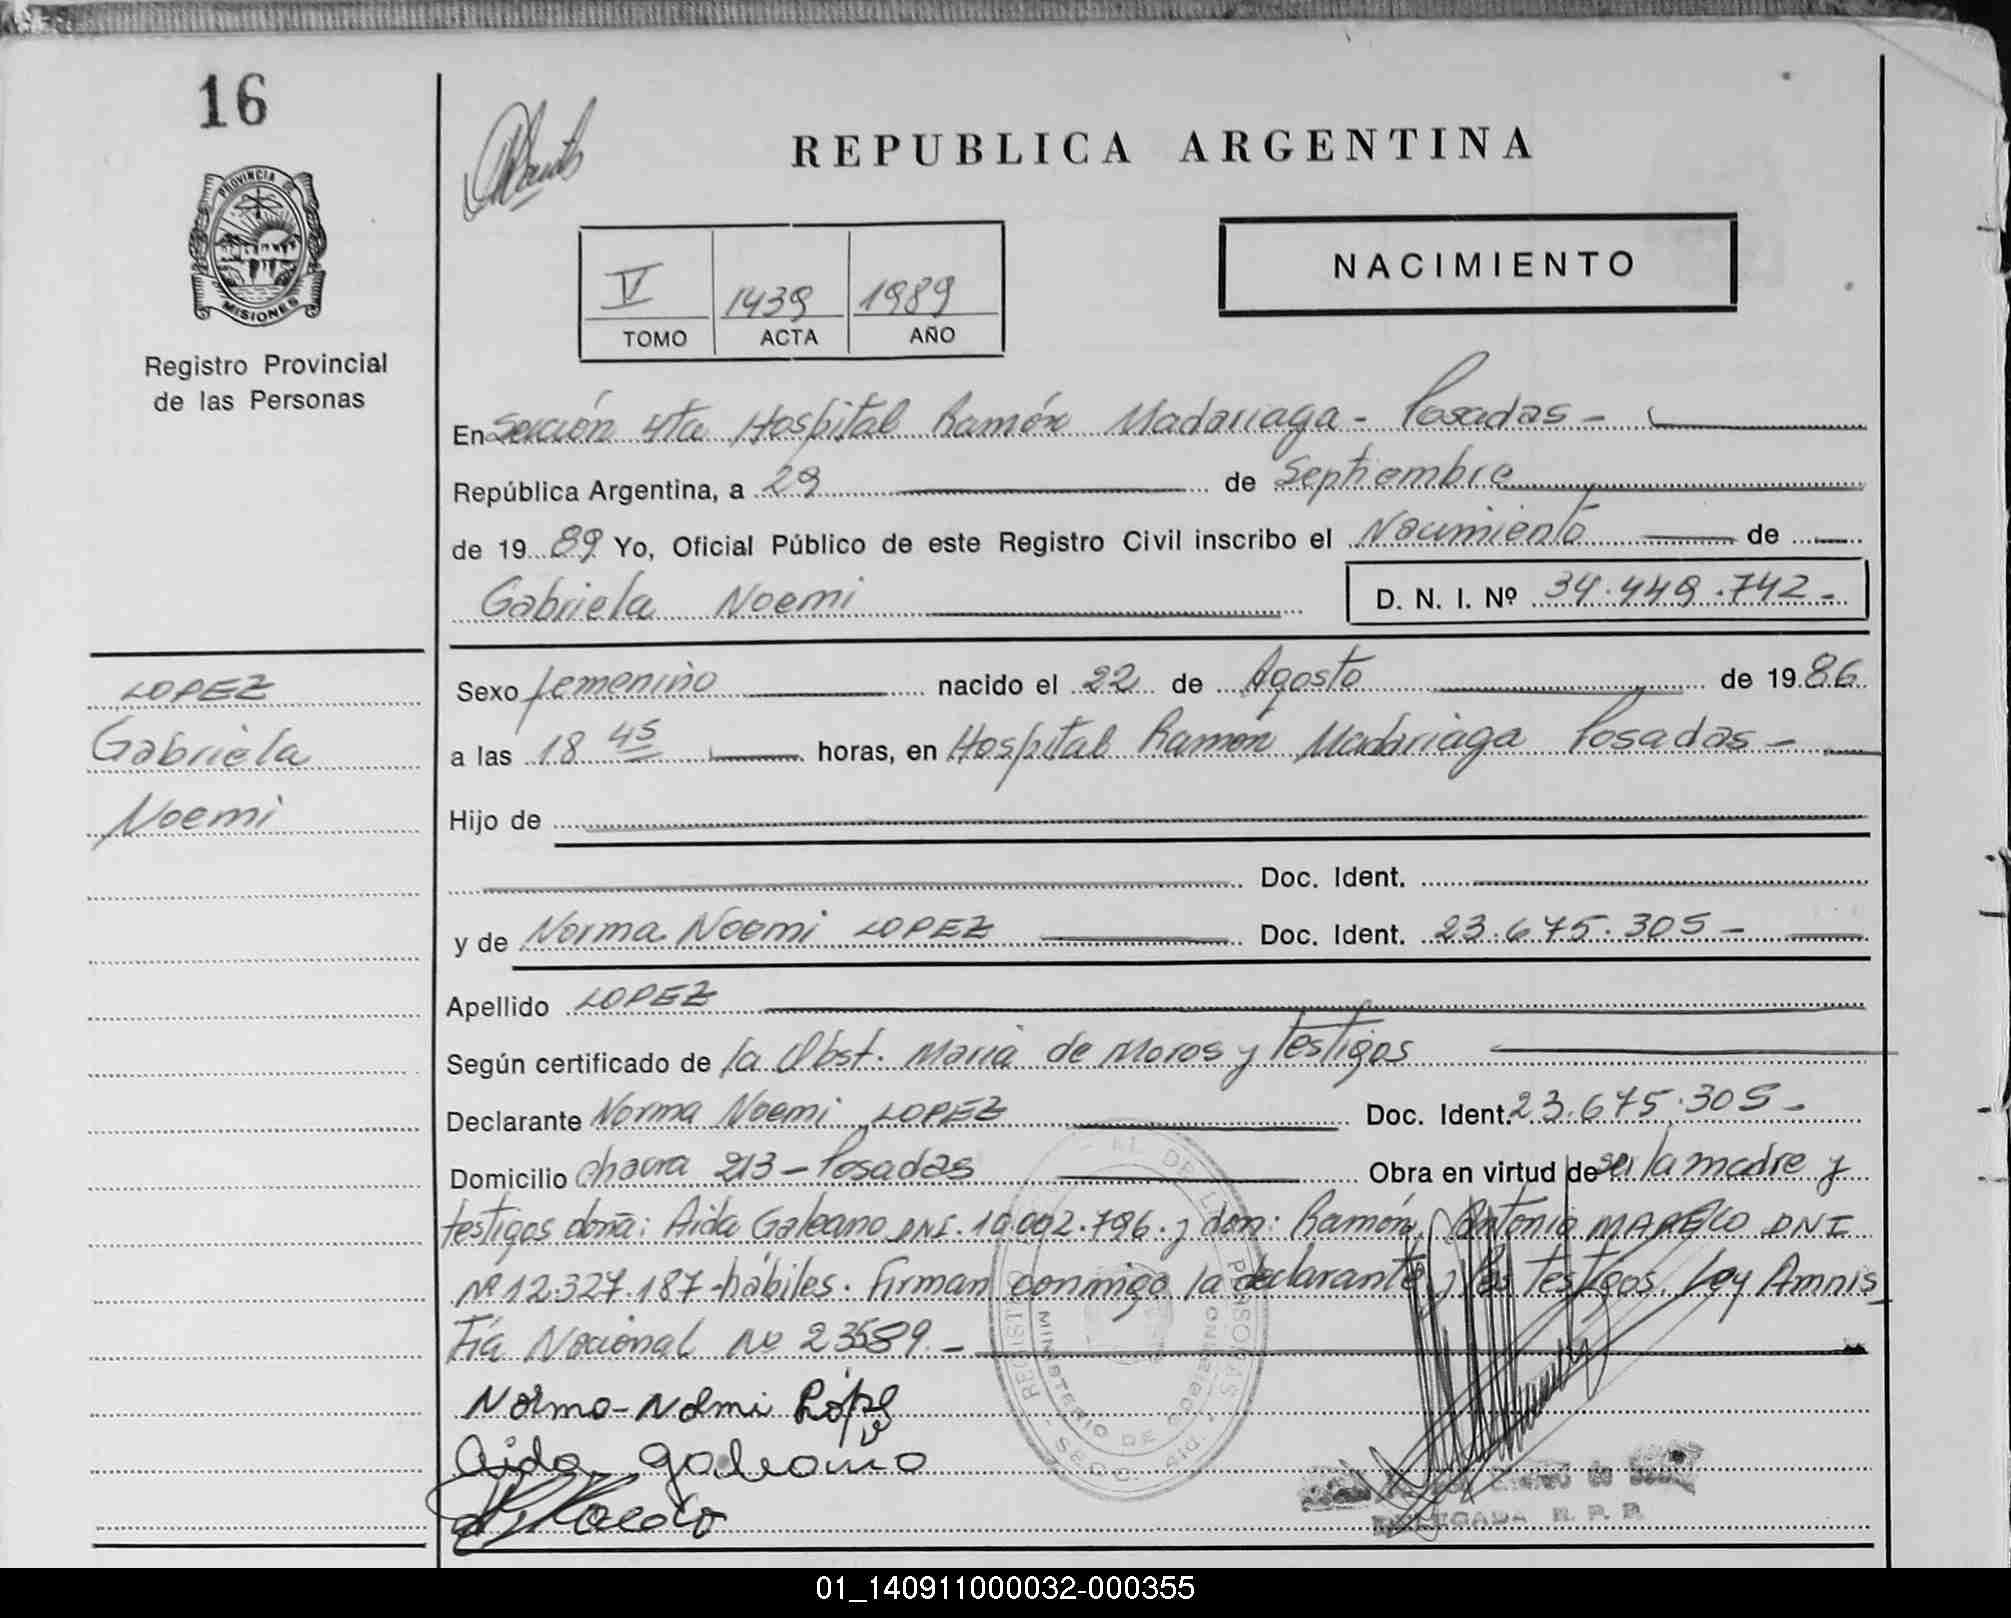 16
PROVINCIA DE
MISIONES
Registro Provincial
de las Personas
REPUBLICA ARGENTINA
NACIMIENTO
V 1439 1989
TOMO ACTA AÑO
En Sección 4ta Hospital Ramón Madariaga - Posadas -
República Argentina, a 29 de Septiembre
de 1989 Yo, Oficial Público de este Registro Civil inscribo el Nacimiento de
Gabriela Noemi D. N. I. Nº 34.449.742-
LOPEZ
Gabriela
Noemi
Sexo femenino nacido el 22 de Agosto de 1986
a las 18 45 horas, en Hospital Ramón Madariaga Posadas -
Hijo de
Doc. Ident.
y de Norma Noemi LOPEZ Doc. Ident. 23.675.305-
Apellido LOPEZ
Según certificado de la Obst. Maria de Moros y Testigos
Declarante Norma Noemi LOPEZ Doc. Ident. 23.675.305-
Domicilio chacra 213 - Posadas Obra en virtud de ser la madre y
testigos doña: Aida Galeano DNI. 10.002.796. y don: Ramón Antonio MARECO DNI
Nº 12.327.187 hábiles. Firman conmigo la declarante y los testigos. Ley Amnis_
tía Nacional Nº 23589.-
Norma-Noemi López
Aida galeano
REGISTRO DE LAS PERSONAS
MINISTERIO DE GOBIERNO
DELEGADA R. P. P.
01_140911000032-000355